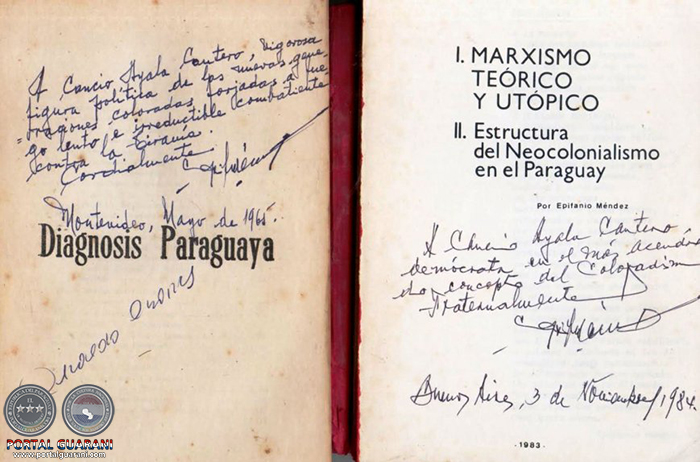 A Cancio Ayala Cantero, vigorosa
figura política de las nuevas gene-
raciones coloradas, forjadas a fue-
go lento e irreductible combatiente
contra la tiranía.
Cordialmente
Montevideo, Mayo de 1965.
Diagnosis Paraguaya
PORTAL GUARANI
www.portalguarani.com
I. MARXISMO
TEÓRICO
Y UTÓPICO
II. Estructura
del Neocolonialismo
en el Paraguay
Por Epifanio Méndez
A Cancio Ayala Cantero
demócrata en el más acendra
do concepto del Coloradismo
Fraternalmente
Buenos Aires, 3 de Noviembre/1984.
· 1983 ·